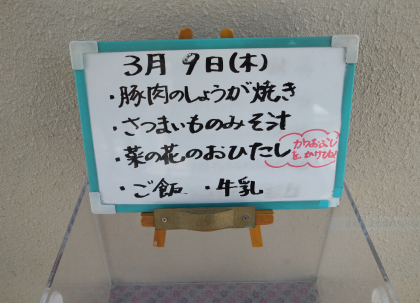 3月9日(木)
・豚肉のしょうが焼き
・さつまいものみそ汁
・菜の花のおひたし
かつおぶし
を かけてね!
・ご飯 ・牛乳